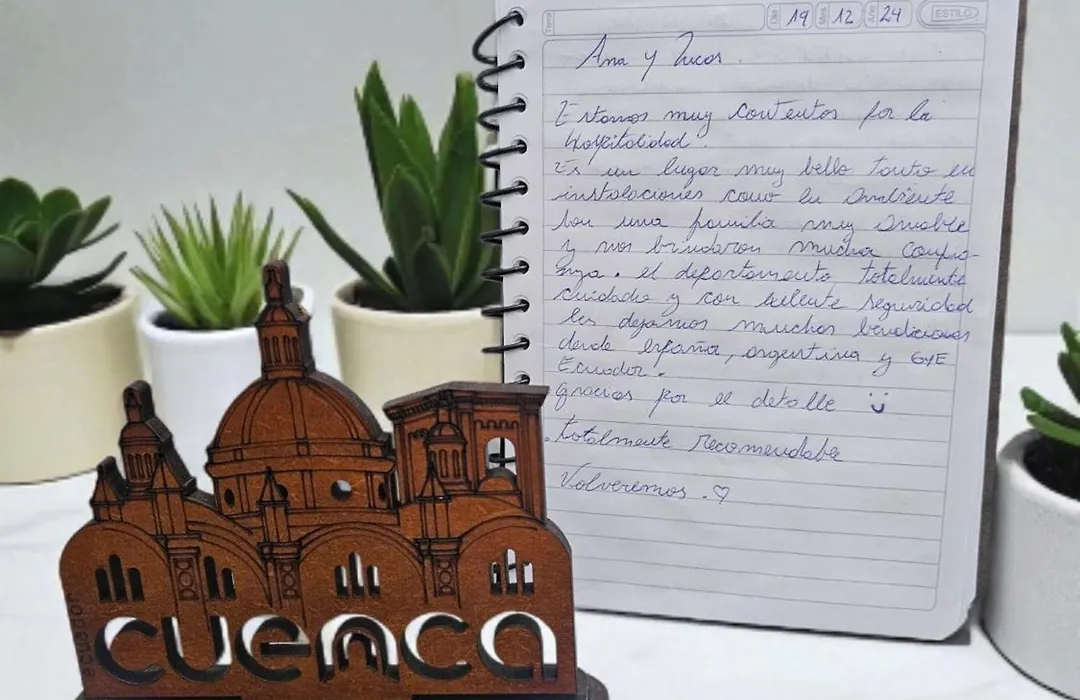 Tema Día 19 Mes 12 Año 24 ESTILO
Ana y Lucas.
Estamos muy contentos por la
hospitalidad.
Es un lugar muy bello tanto en
instalaciones como en ambiente
son una familia muy amable
y nos brindaron mucha confia-
nza. el departamento, totalmente
cuidado y con excelente seguridad
les dejamos muchos bendiciones
desde españa, argentina y GYE
Ecuador.
gracias por el detalle
totalmente recomendable
Volveremos. ♡
ecuador
cuenca